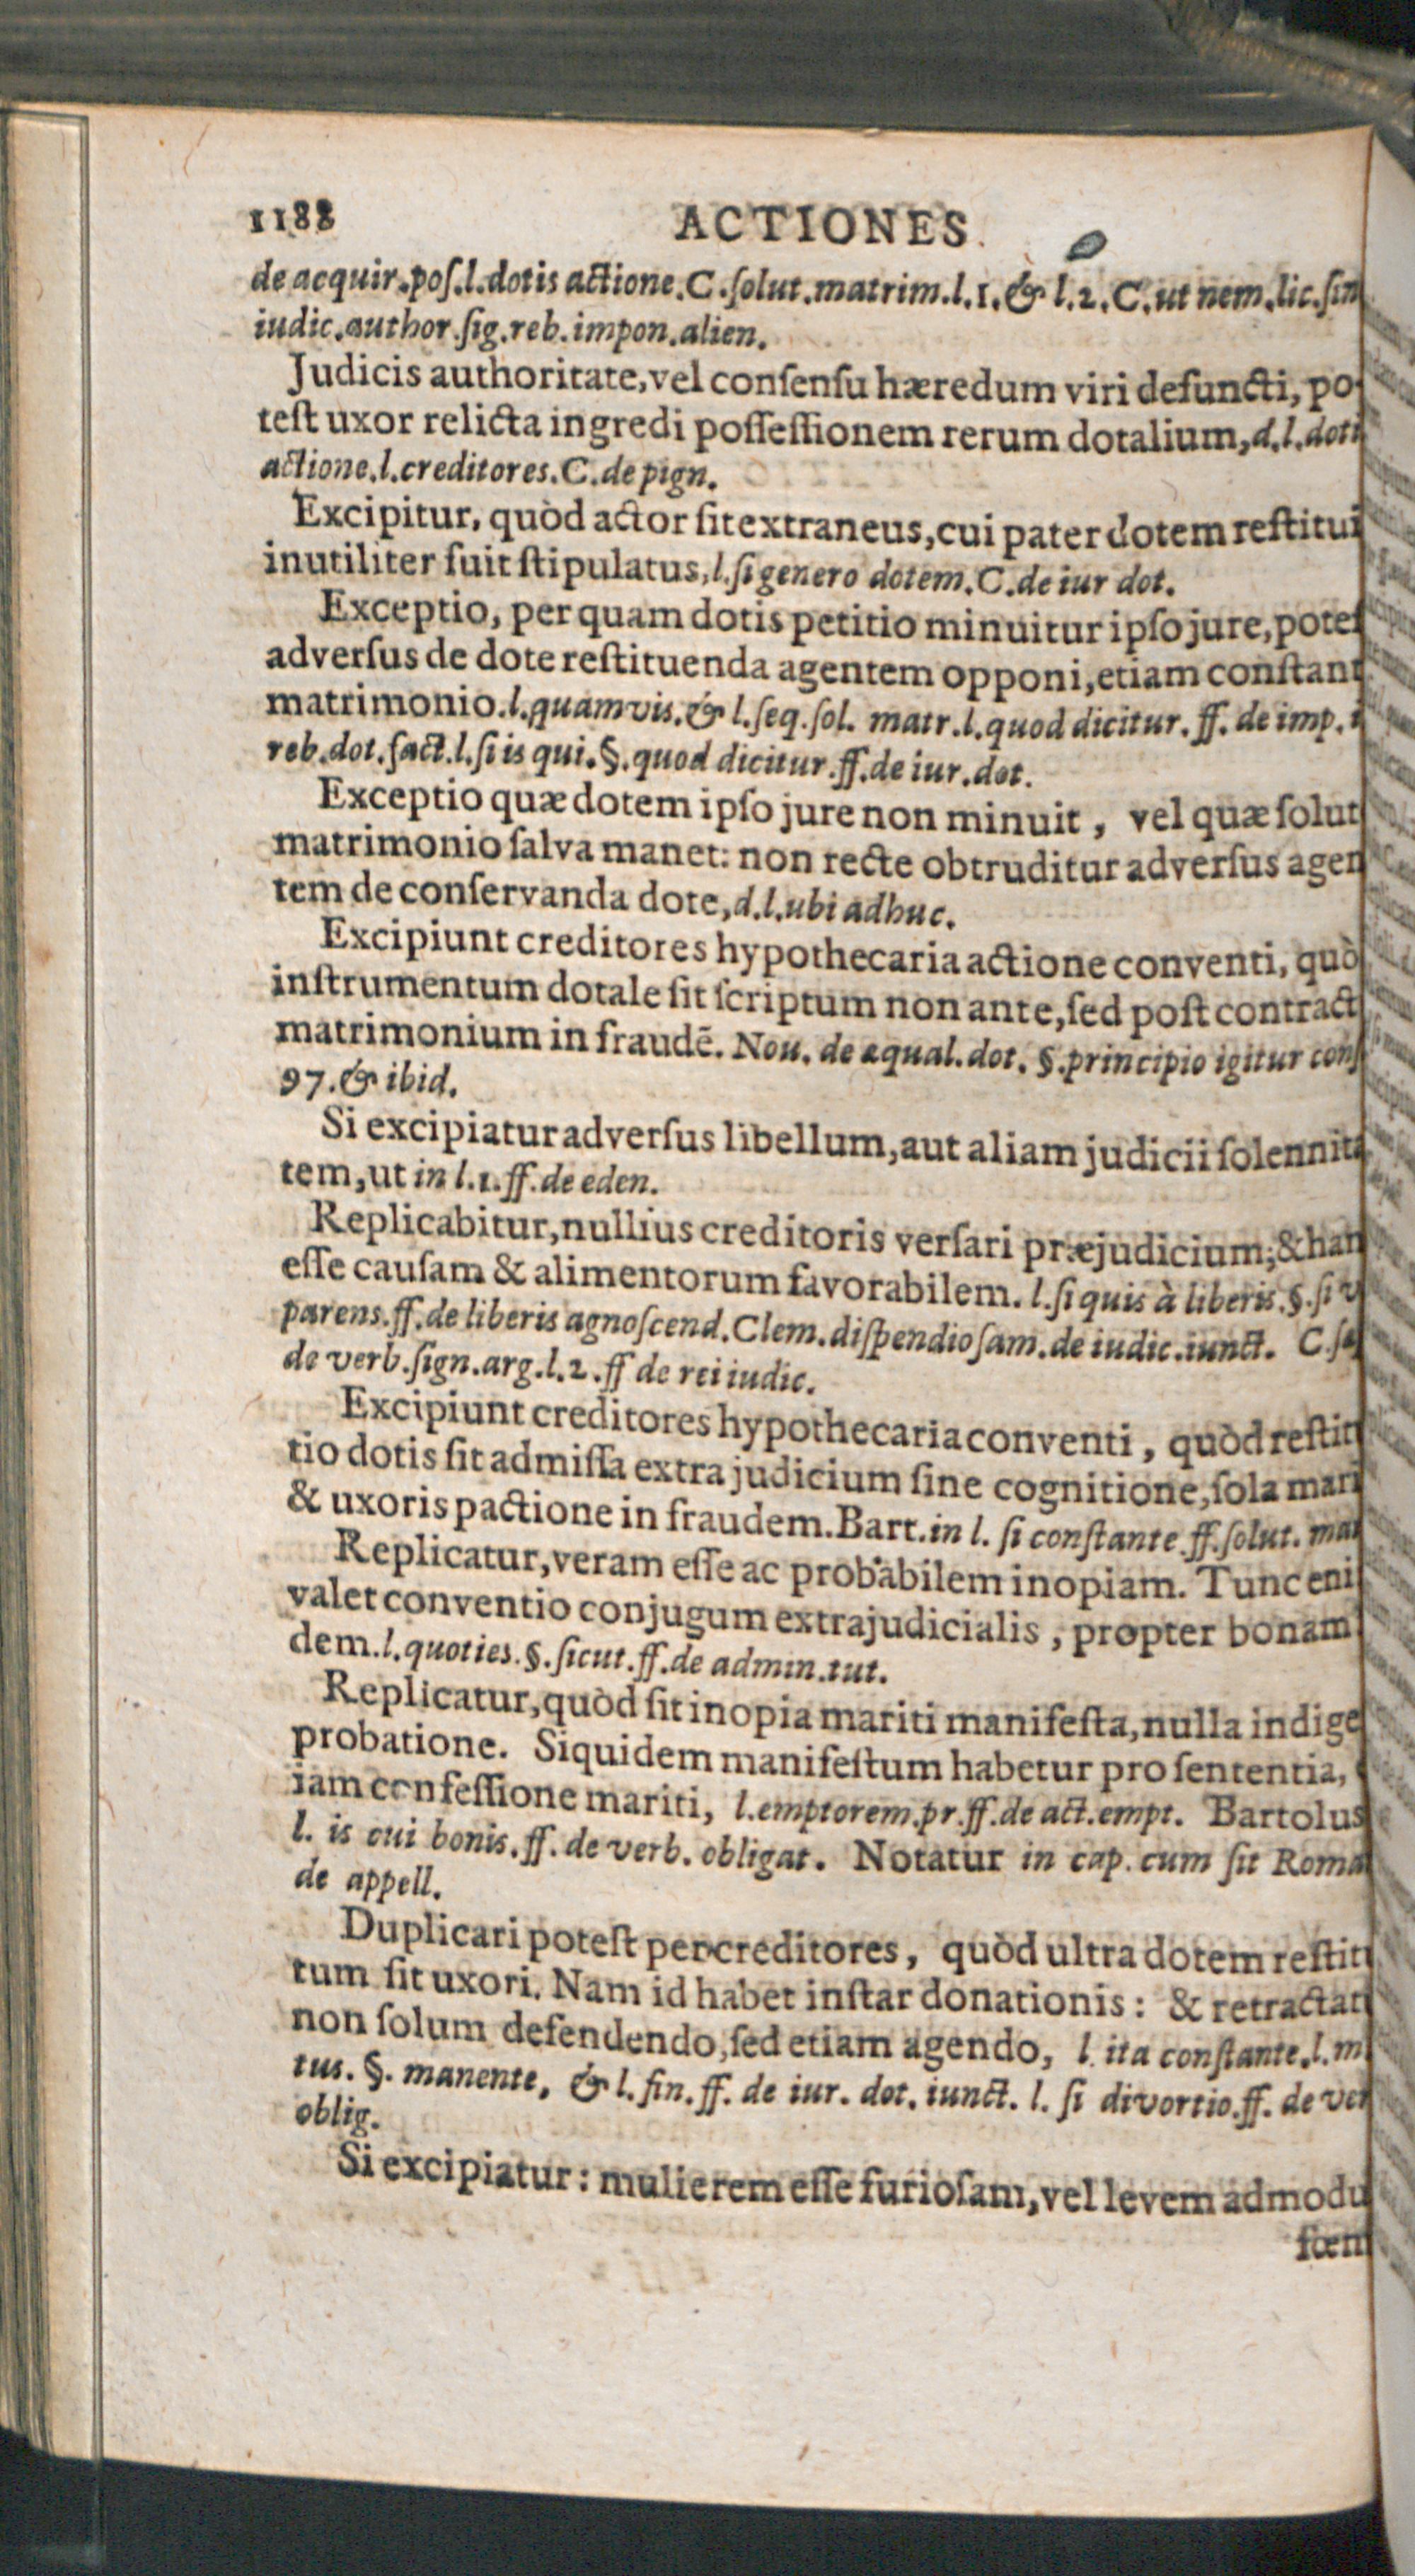 1188 ACTIONES.
de acquir.poſ.l.dotis actione.C.ſolut.matrim.l.1.& l.2.C.ut nem.lic.ſin
iudic.author.ſig.reb.impon.alien.
Judicis authoritate, vel conſenſu hæredum viri defuncti, po-
teſt uxor relicta ingredi poſſeſſionem rerum dotalium, d.l.doti
actione.l.creditores.C.de pign.
Excipitur, quòd actor ſit extraneus, cui pater dotem reſtitui
inutiliter fuit ſtipulatus, l.ſi genero dotem.C.de iur dot.
Exceptio, per quam dotis petitio minuitur ipſo jure, poteſ
adverſus de dote reſtituenda agentem opponi, etiam conſtant
matrimonio.l.quamvis.& l.ſeq.ſol. matr.l.quod dicitur.ff. de imp. i
reb.dot.fact.l.ſi is qui.§.quod dicitur.ff.de iur.dot.
Exceptio quæ dotem ipſo jure non minuit, vel quæ ſolut
matrimonio ſalva manet: non recte obtruditur adverſus agen
tem de conſervanda dote, d.l.ubi adhuc.
Excipiunt creditores hypothecaria actione conventi, quò
inſtrumentum dotale ſit ſcriptum non ante, ſed poſt contract
matrimonium in fraudē. Nou. de æqual.dot. §.principio igitur conſ
97.& ibid.
Si excipiatur adverſus libellum, aut aliam judicii ſolennita
tem, ut in l.1.ff.de eden.
Replicabitur, nullius creditoris verſari præjudicium; & han
eſſe cauſam & alimentorum favorabilem. l.ſi quis à liberis.§.ſi v
parens.ff.de liberis agnoſcend.Clem.diſpendioſam.de iudic.iunct. C.ſæ
de verb.ſign.arg.l.2.ff de rei iudic.
Excipiunt creditores hypothecaria conventi, quòd reſtit
tio dotis ſit admiſſa extra judicium ſine cognitione, ſola mari
& uxoris pactione in fraudem. Bart.in l. ſi conſtante.ff.ſolut. mat
Replicatur, veram eſſe ac probabilem inopiam. Tunc eni
valet conventio conjugum extrajudicialis, propter bonam
dem.l.quoties.§.ſicut.ff.de admin.tut.
Replicatur, quòd ſit inopia mariti manifeſta, nulla indige
probatione. Siquidem manifeſtum habetur pro ſententia,
iam confeſſione mariti, l.emptorem.pr.ff.de act.empt. Bartolus
l. is cui bonis.ff. de verb. obligat. Notatur in cap. cum ſit Roma
de appell.
Duplicari poteſt per creditores, quòd ultra dotem reſtit
tum ſit uxori. Nam id habet inſtar donationis: & retractat
non ſolum defendendo, ſed etiam agendo, l. ita conſtante.l.m
tus. §. manente, & l. fin.ff. de iur. dot. iunct. l. ſi divortio.ff. de ver
oblig.
Si excipiatur: mulierem eſſe furioſam, vel levem admodu
fœm